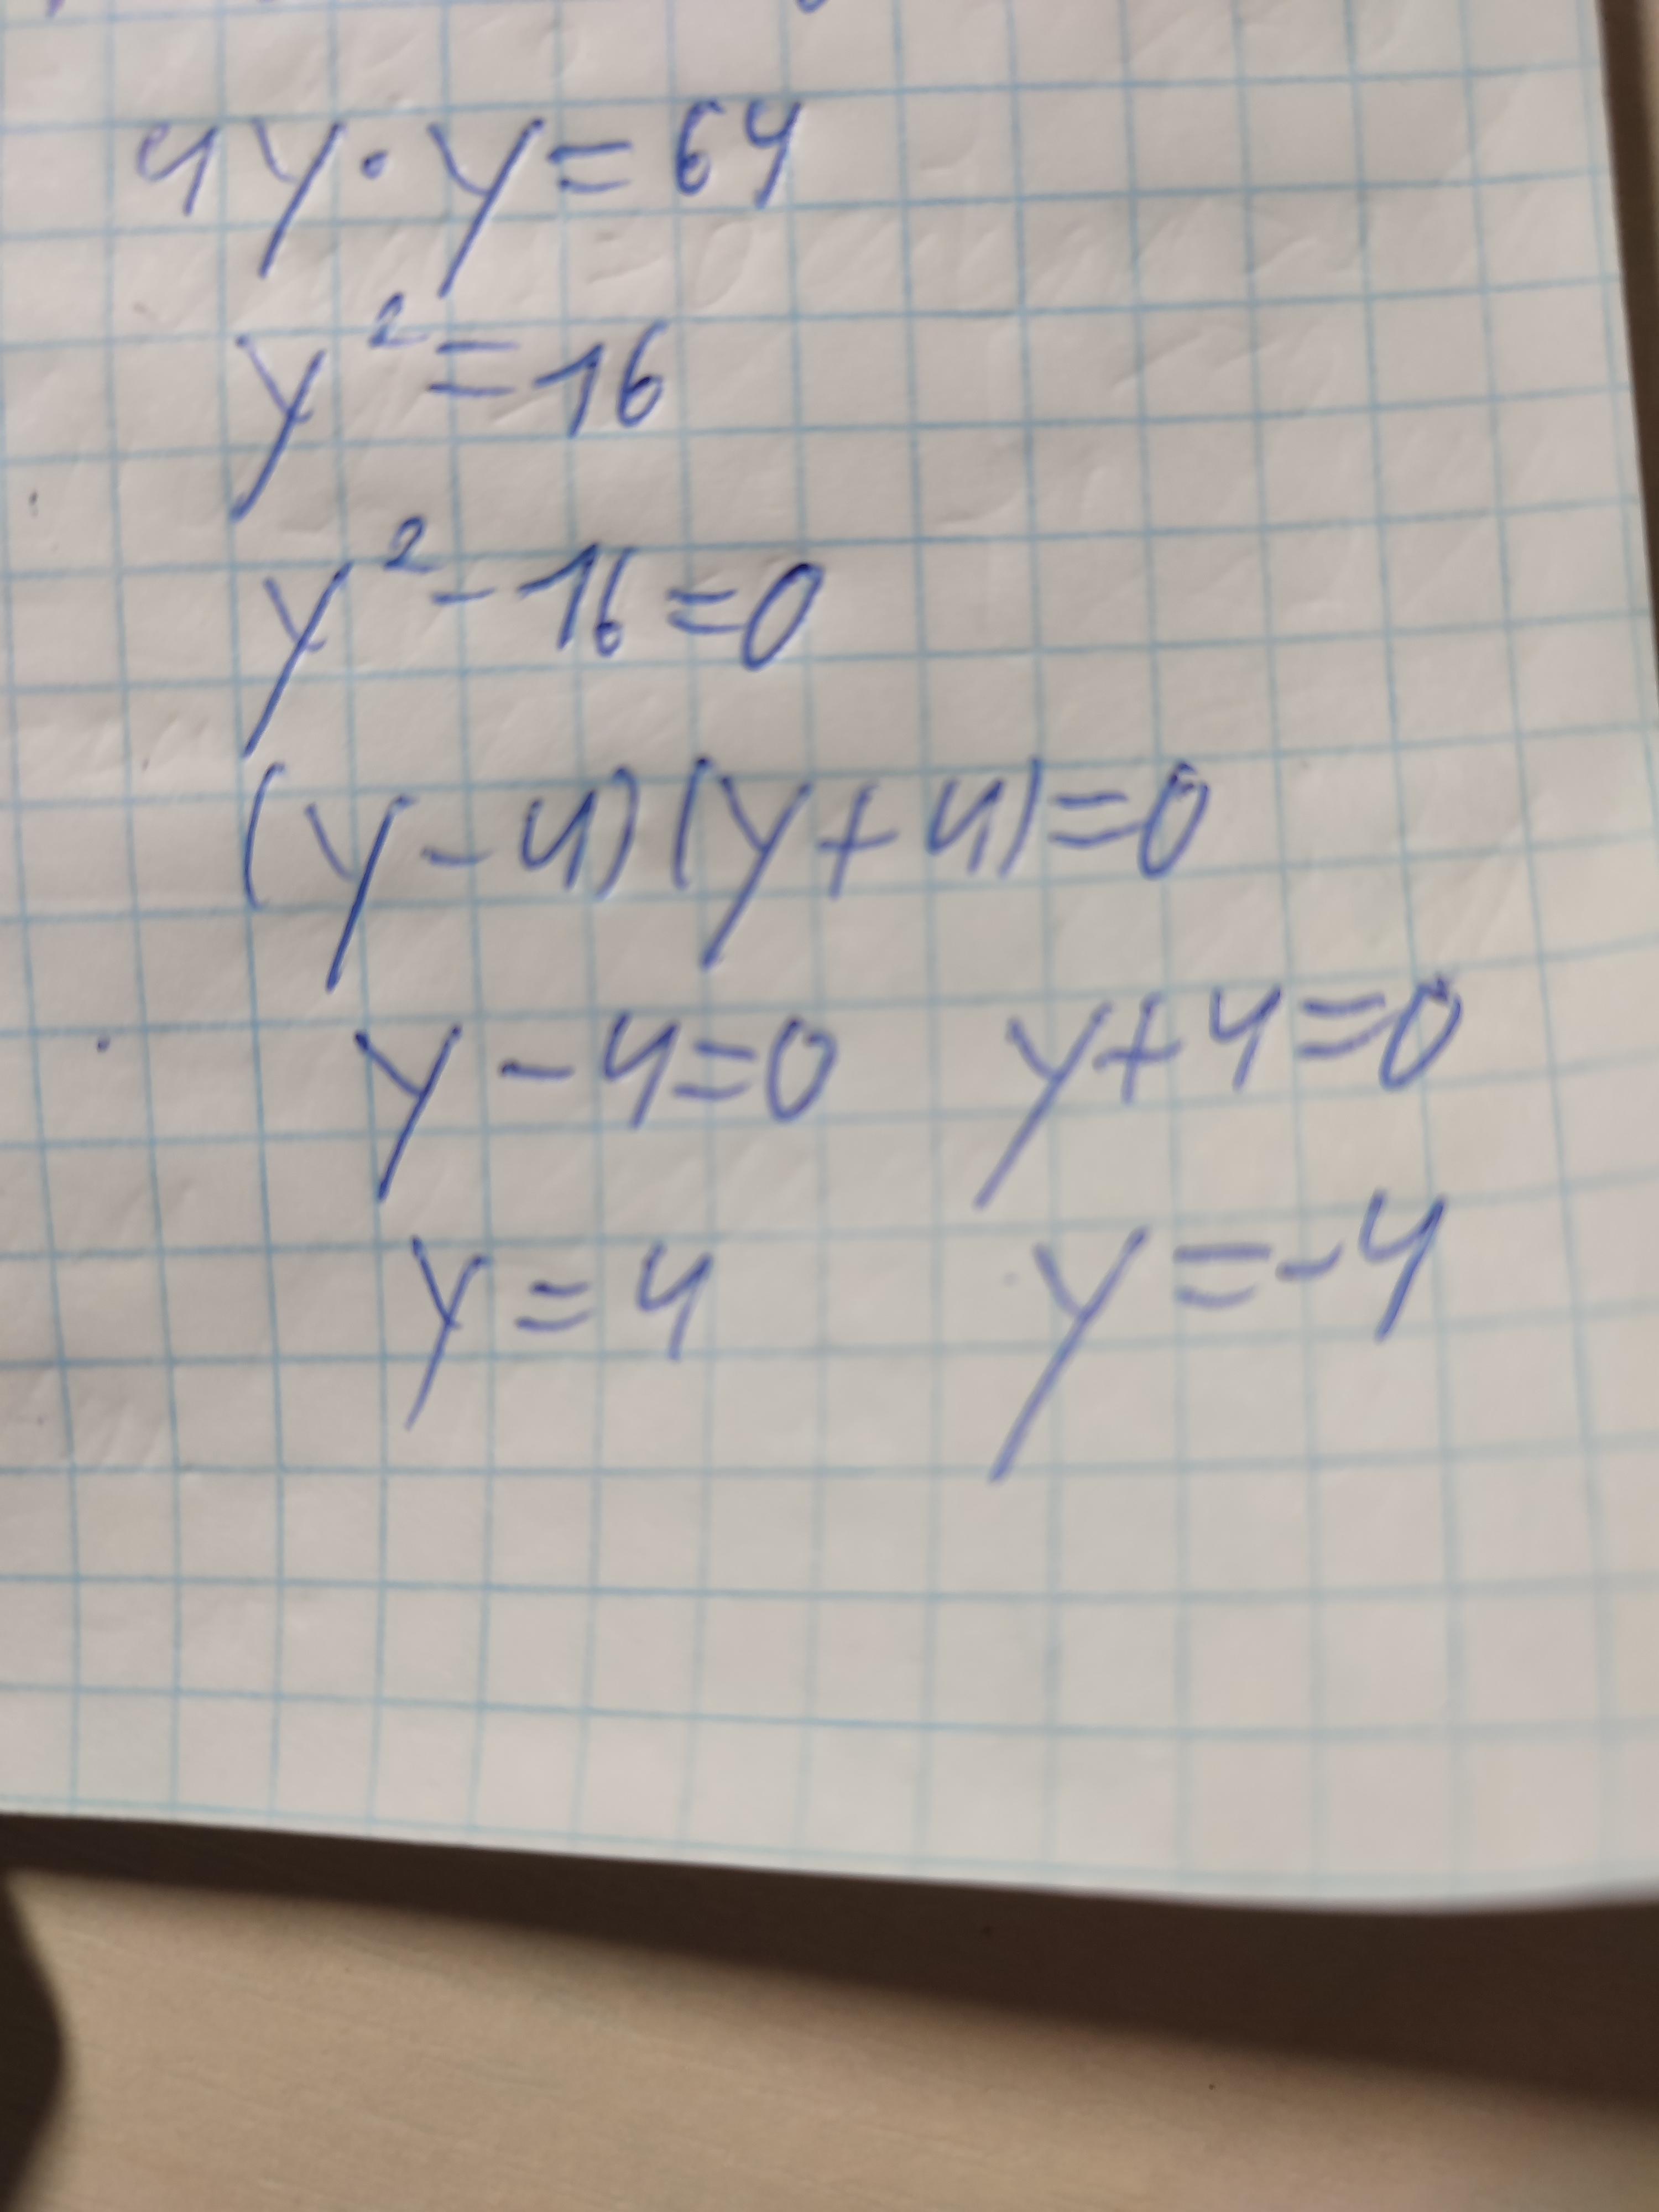 4y·y=64
y²=16
y²-16=0
(y-4)(y+4)=0
y-4=0 y+4=0
y=4 y=-4